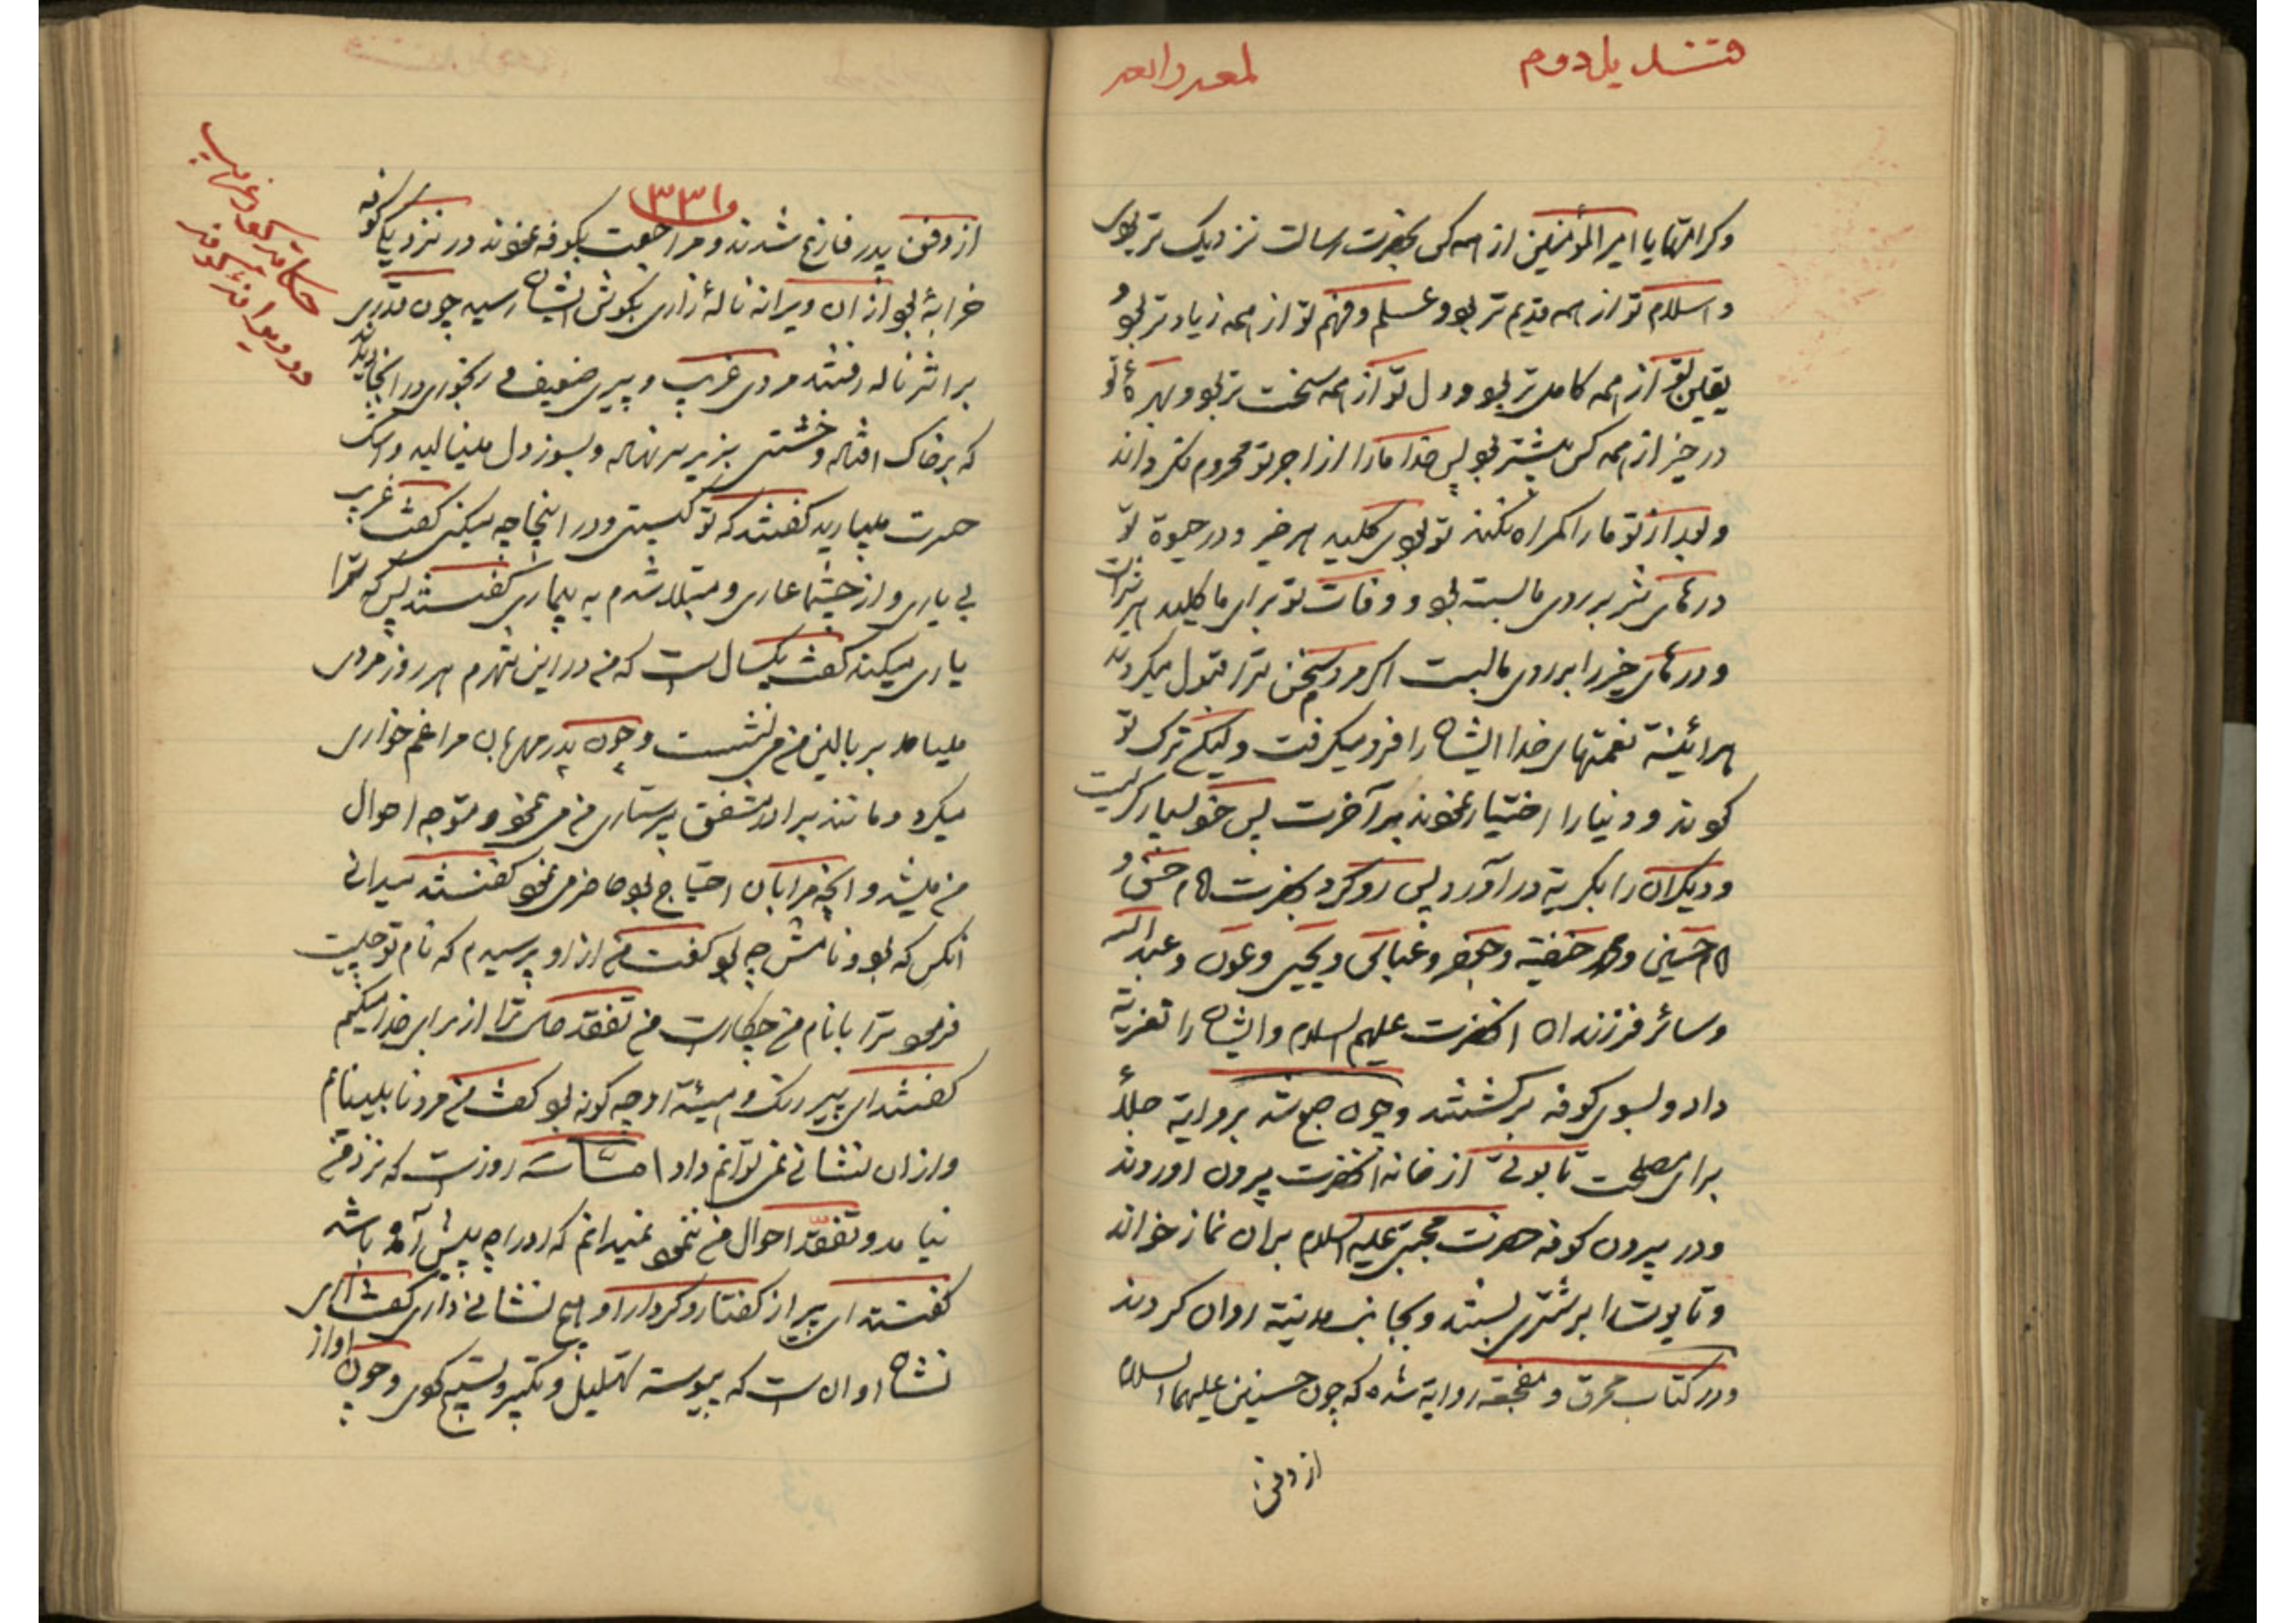 قندیل دوم
لمعه رابعه
و کرامتها یا امیر المؤمنین از همه کس بحضرت رسالت نزدیک تر بودی
و اسلام تو از همه قدیم تر بود و علم و فهم تو از همه زیاد تر بود و
یقین تو از همه کامل تر بود و دل تو از همه سخت تر بود و بهرهٔ تو
در خیر از همه کس بیشتر بود پس خدا ما را از اجر تو محروم نگرداند
و بعد از تو ما را گمراه نکند تو بودی کلید هر خیر و در حیوة تو
درهای شر بر روی ما بسته بود و وفات تو برای ما کلید هر شر است
و درهای خیر را بر روی ما بست اگر مردم سخن ترا قبول میکردند
هرائینه نعمتهای خدا ایشان را فرو میگرفت ولیکن ترک تو
کردند و دنیا را اختیار نمودند بر آخرت پس خود بسیار گریست
و دیگران را بگریه در آورد پس رو کرد بحضرت امام حسن و
امام حسین و محمد حنفیه و جعفر و عباس و یحیی و عون و عبد الله
و سائر فرزندان انحضرت علیهم السلام و ایشان را تعزیة
داد و بسوی کوفه برگشتند و چون صبح شد بروایة جلاء
برای مصلحت تابوتی از خانه انحضرت بیرون اوردند
و در بیرون کوفه حضرت مجتبی علیه السلام بران نماز خواند
و تابوت را بر شتری بستند و بجانب مدینه روان کردند
و در کتاب محرق و مفجعه روایة شده که چون حسنین علیهما السلام
از دفن
۳۳۱
از دفن پدر فارغ شدند و مراجعت بکوفه نمودند در نزدیک کوفه
خرابهٔ بود از ان ویرانه نالهٔ زاری بگوش ایشان رسید چون قدری
بر اثر ناله رفتند مردی غریب و پیری ضعیف و رنجوری در انجا دیدند
که بر خاک افتاده و خشتی بزیر سر نهاده و بسوز دل مینالید و اشک
حسرت میبارید گفتند که تو کیستی و در اینجا چه میکنی گفت غریب
بی یاری و از چشمها عاری و مبتلا شدم به بیماری گفتند پس که ترا
یاری میکند گفت یکسال است که من در این شهرم هر روز مردی
میامد بر بالین من می نشست و چون پدر مهربان مرا غم خواری
میکرد و مانند برادر مشفق پرستاری من می نمود و متوجه احوال
من میشد و انچه مرا بان احتیاج بود حاضر می نمود گفتند میدانی
انکس که بود و نامش چه بود گفت من از او پرسیدم که نام تو چیست
فرمود ترا با نام من چکار است من تفقد حال ترا از برای خدا میکنم
گفتند ای پیر رنگ و هیئة او چه گونه بود گفت من مرد نابینایم
و از ان نشانی نمی توانم داد اما سه روز است که نزد من
نیامد و تفقد احوال من ننمود نمیدانم که او را چه پیش آمده باشد
گفتند ای پیر از گفتار و کردار او هیچ نشانی داری گفت اری
نشان او ان است که پیوسته تهلیل و تکبیر و تسبیح گوی و چون اواز